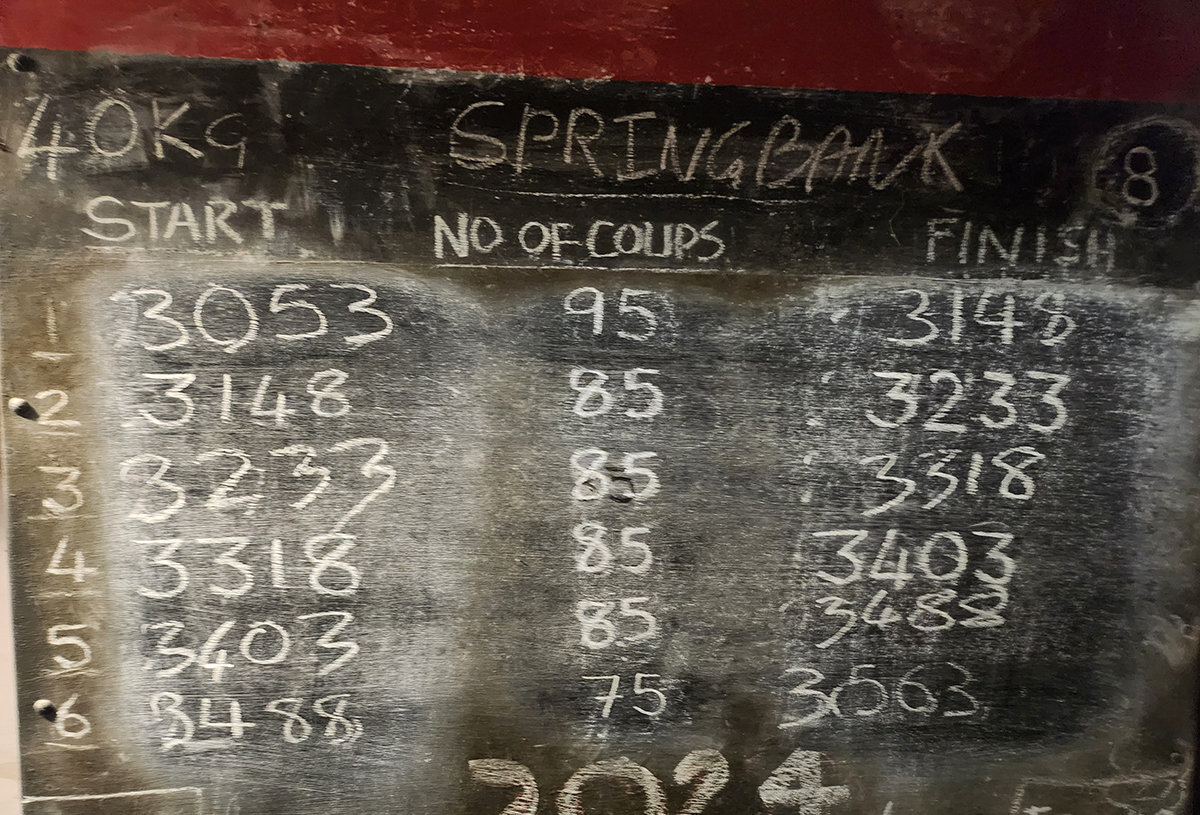 40KG SPRINGBANK 8
START NO OF COUPS FINISH
1 3053 95 3148
2 3148 85 3233
3 3233 85 3318
4 3318 85 3403
5 3403 85 3488
6 3488 75 3563
2024